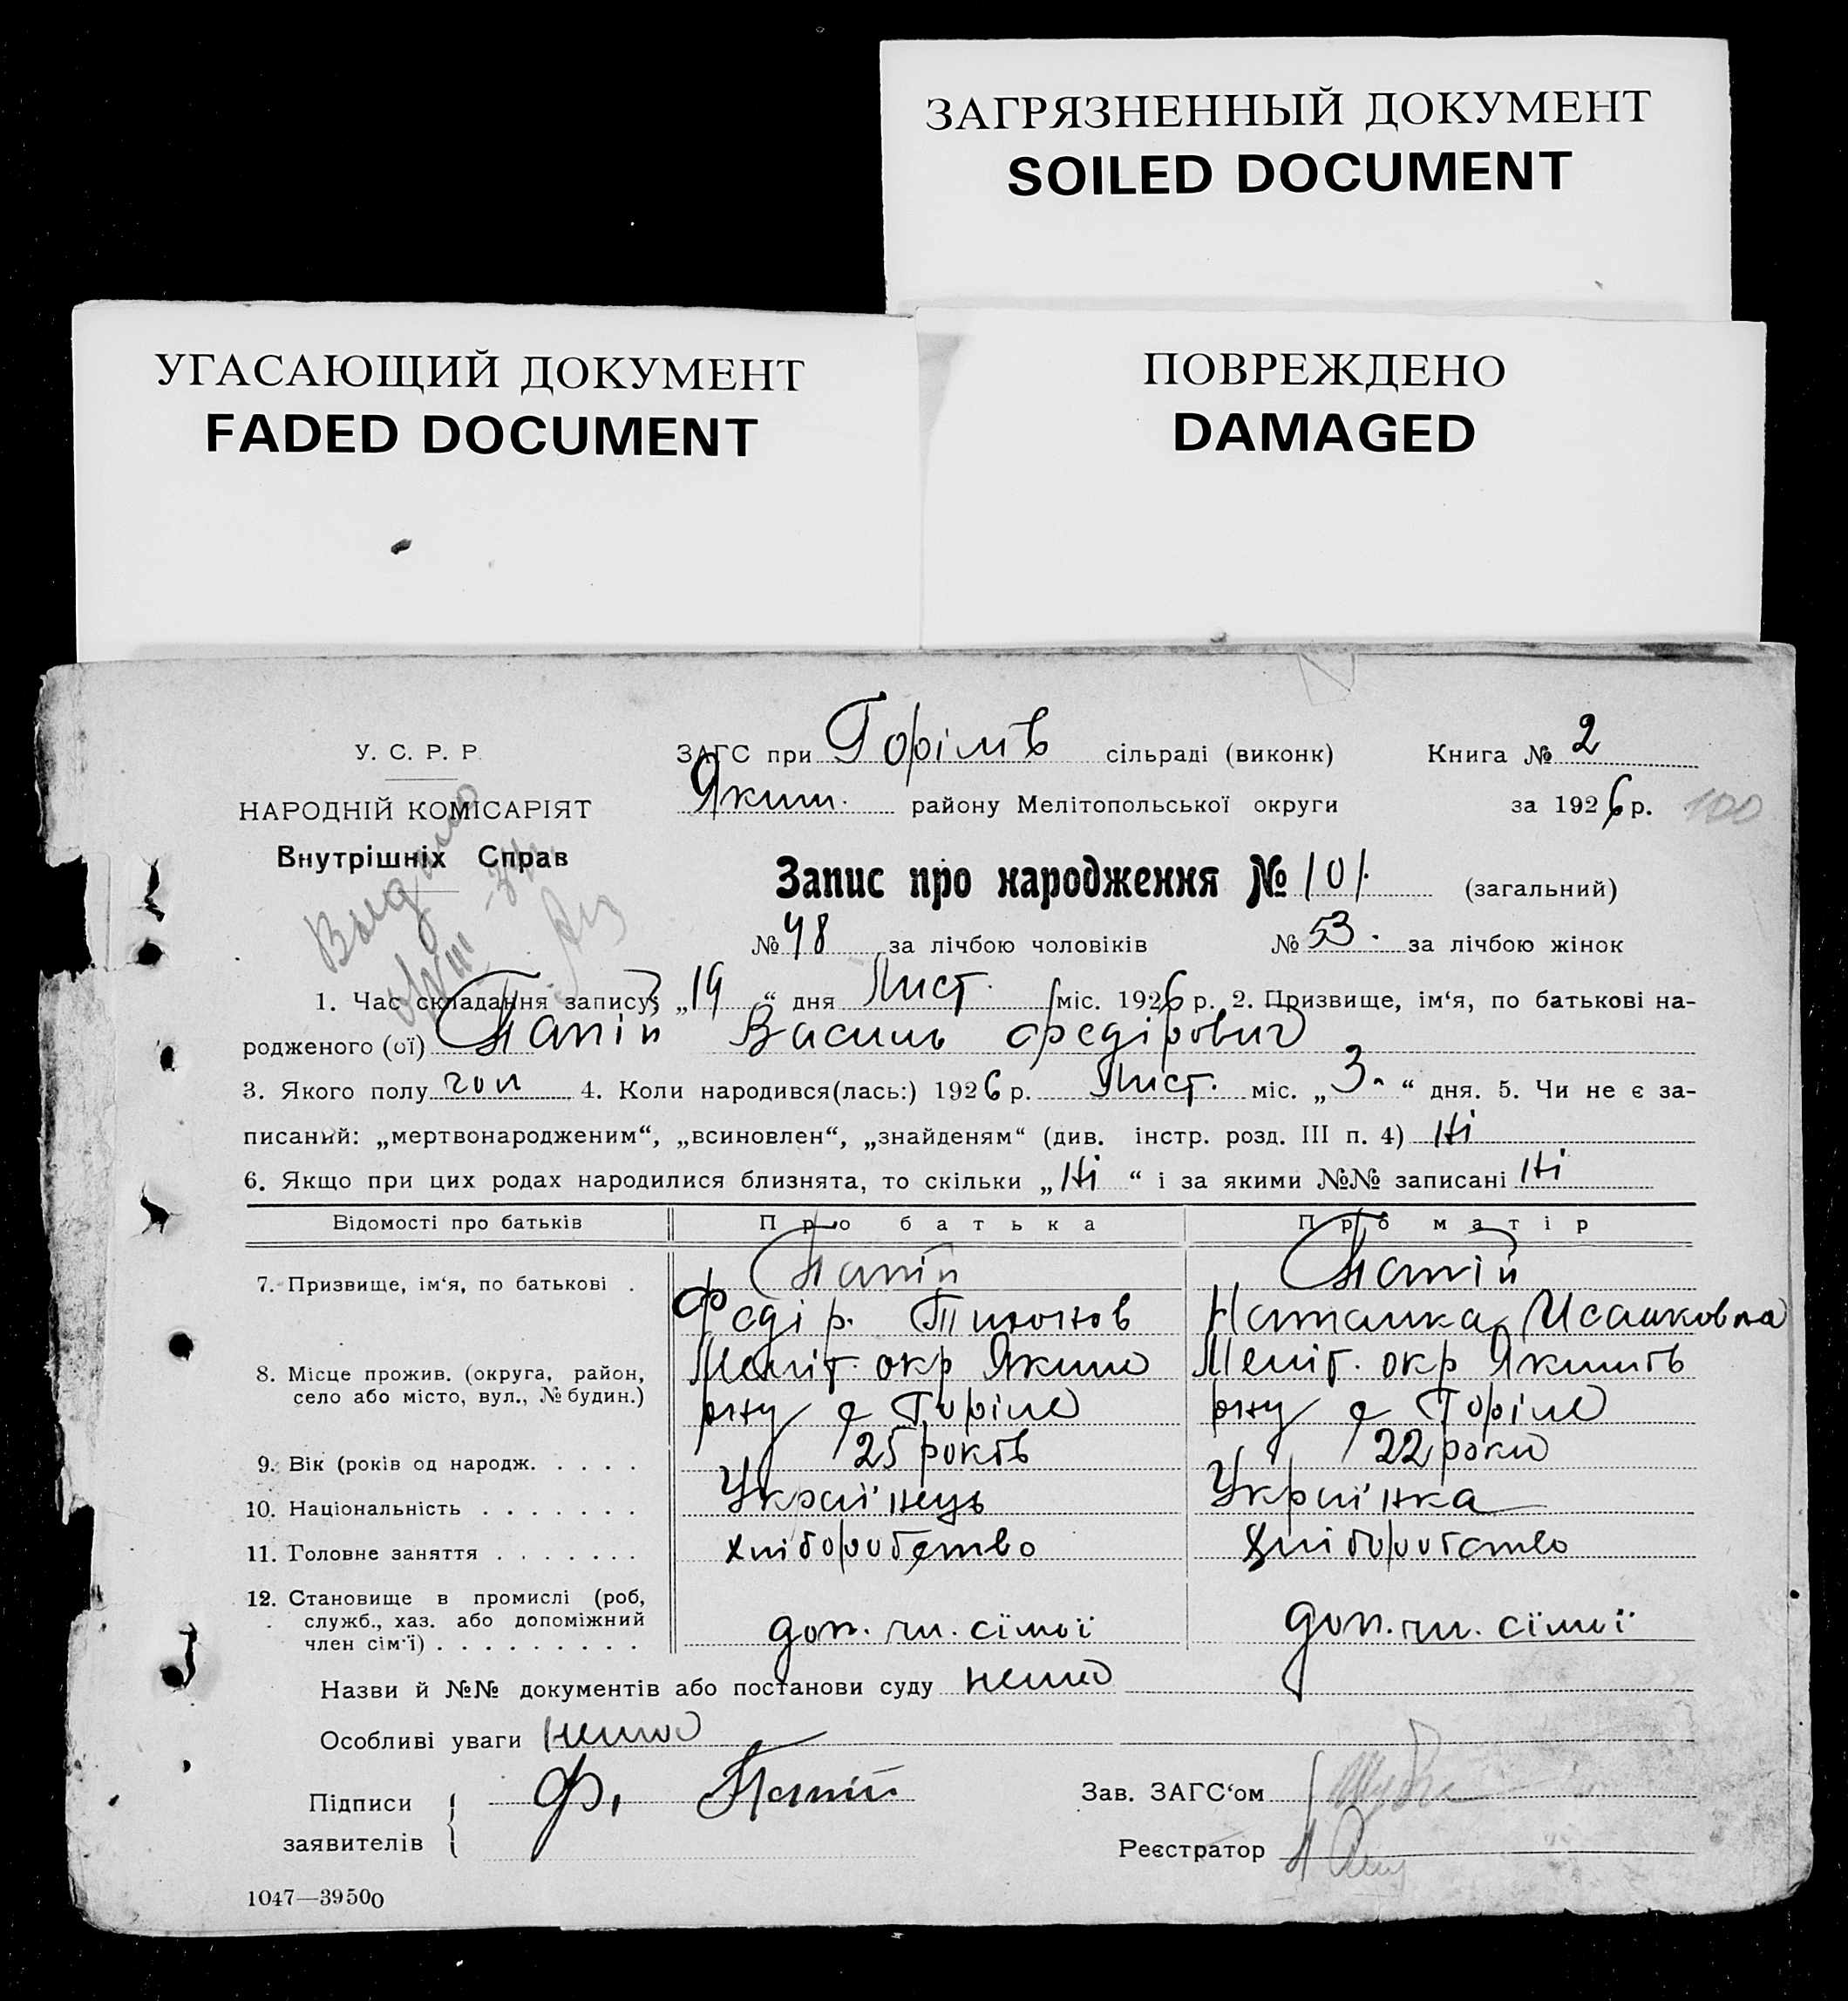 ЗАГРЯЗНЕННЫЙ ДОКУМЕНТ
SOILED DOCUMENT
УГАСАЮЩИЙ ДОКУМЕНТ
FADED DOCUMENT
ПОВРЕЖДЕНО
DAMAGED
У. С. Р. Р.
НАРОДНІЙ КОМІСАРІЯТ
Внутрішніх Справ
ЗАГС при Горілів сільраді (виконк) Книга № 2
Яким. району Мелітопольської округи за 1926 р. 100
Запис про народження № 101. (загальний)
№ 48 за лічбою чоловіків № 53. за лічбою жінок
1. Час складання запису: „14“ дня Лист. міс. 1926 р. 2. Призвище, ім‘я, по батькові на-
родженого (ої) Папій Василь Федірович
3. Якого полу чол 4. Коли народився(лась:) 1926 р. Лист. міс. „3.“ дня. 5. Чи не є за-
писаний: „мертвонародженим“, „всиновлен“, „знайденям“ (див. інстр. розд. III п. 4) Ні
6. Якщо при цих родах народилися близнята, то скільки „Ні“ і за якими №№ записані Ні
Відомості про батьків Про батька Про матір
7. Призвище, ім‘я, по батькові . Папій Папій
Федір. Тихонов Наталка Исааковна
8. Місце прожив. (округа, район, Меліт. окр Яким Меліт. окр Якимів
село або місто, вул., № будин.) рну с Горіле рну с Горіле
9. Вік (років од народж. . . . . 25 років 22 роки
10. Національність . . . . . . . Украї'нець Украї'нка
11. Головне заняття . . . . . . . хліборобство хліборобство
12. Становище в промислі (роб,
служб., хаз. або допоміжний
член сім‘ї) . . . . . . . . . доп. чл. сімої доп. чл. сімої
Назви й №№ документів або постанови суду нема
Особливі уваги нема
Підписи Ф. Папій Зав. ЗАГС‘ом
заявителів Реєстратор
1047—39500